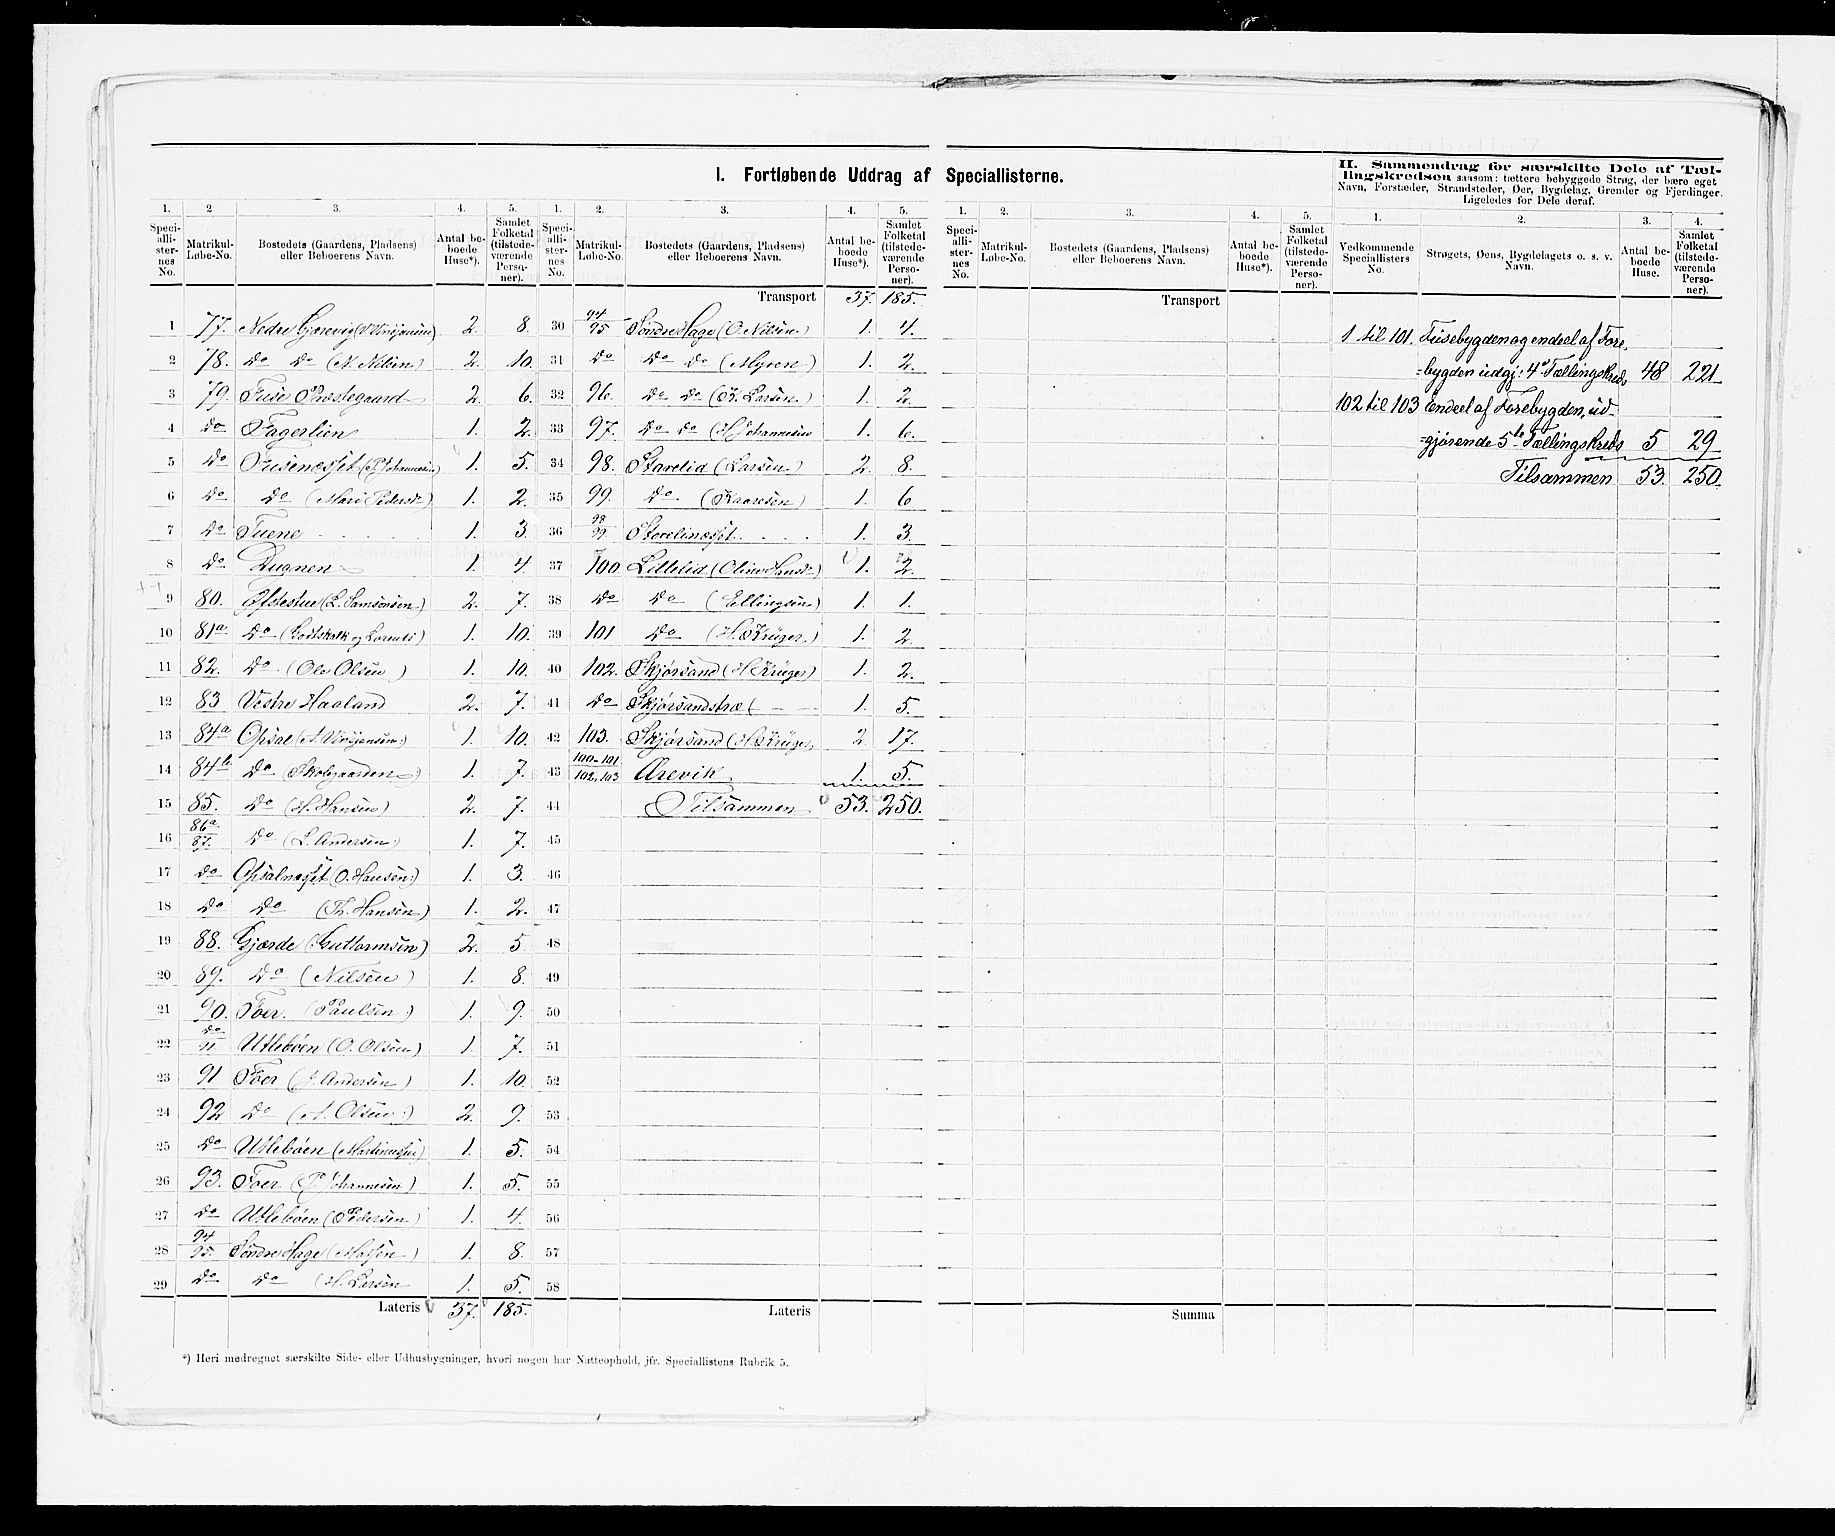 I. Fortløbende Uddrag af Speciallisterne.
1. 2. 3. 4. 5.
Speciallisternes No. Matrikul-Løbe-No. Bostedets (Gaardens, Pladsens) eller Beboerens Navn. Antal beboede Huse*). Samlet Folketal (tilstedeværende Personer).
1 77. Nedre Gjærevig 2. 8.
2 78. Do Do (N. Nilsen) 2. 10.
3 79. Fuse Præstegaard 2. 6.
4 Do Fagerlien 1. 2.
5 Do Fusenesset (P. Johannesen) 1. 5.
6 Do Do (Mari Pedersdr) 1. 2.
7 Do Tuene 1. 3.
8 Do Dugnen 1. 4.
9 80. Øfstestue (L. Samsonsen) 2. 7.
10 81a Do (Godtskalk og Larents) 1. 10.
11 82. Do (Ole Olsen) 1. 10.
12 83 Vestre Haaland 2. 7.
13 84a Opsal 1. 10.
14 84b Do (Skolegaarden) 1. 7.
15 85. Do (H. Hansen) 2. 7.
16 86a 87. Do (L. Andersen) 1. 7.
17 Do Opsalnesset (O. Hansen) 1. 3.
18 Do Do (Th. Hansen) 1. 2.
19 88. Gjærde (Guttormsen) 2. 5.
20 89. Do (Nilsen) 1. 8.
21 90. Foer. (Paulsen) 1. 9.
22 Do Utlebøen (O. Olsen) 1. 7.
23 91 Foer (J. Andersen) 1. 10.
24 92 Do (A. Olsen) 2. 9.
25 Do Utlebøen (Martinussen) 1. 5.
26 93. Foer (P. Johannesen) 1. 5.
27 Do Utlebøen (Pedersen) 1. 4.
28 94 95. Søndre Hage (Matsen) 1. 8.
29 Do Do (H. Larsen 1. 5.
Lateris 37. 185.
*) Heri medregnet særskilte Side- eller Udhusbygninger, hvori nogen har Natteophold, jfr. Speciallistens Rubrik 5.
1. 2. 3. 4. 5.
Speciallisternes No. Matrikul-Løbe-No. Bostedets (Gaardens, Pladsens) eller Beboerens Navn. Antal beboede Huse*). Samlet Folketal (tilstedeværende Personer).
Transport 37. 185.
30 94 95 Søndre Hage (O. Nilsen) 1. 4.
31 Do Do Do (Myren) 1. 2.
32 96. Do Do (K. Larsen) 1. 2.
33 97. Do Do (H. Johannesen 1. 6.
34 98. Storelid (Larsen) 2. 8.
35 99. Do (Kaaresen) 1. 6
36 98 99 Storelinesset 1. 3.
37 100 Lillelid (Oline Hansdr) 1. 2.
38 Do Do (Ellingsen) 1. 1.
39 101 Do (H. Krüger) 1. 2
40 102. Skjørsand (H. Krüger) 1. 2.
41 Do Skjørsandstræ ( 1. 5.
42 103. Skjørsand (H Krüger) 2 17.
43 100-101 102,103 Ærevik 1. 5.
44 Tilsammen 53. 250.
45
46
47
48
49
50
51
52
53
54
55
56
57
58
Lateris
1. 2. 3. 4. 5.
Speciallisternes No. Matrikul-Løbe-No. Bostedets (Gaardens, Pladsens) eller Beboerens Navn. Antal beboede Huse*). Samlet Folketal (tilstedeværende Personer).
Transport
Summa
II. Sammendrag for særskilte Dele af Tæl-
lingskredsen saasom: tættere bebyggede Strøg, der bære eget
Navn, Forstæder, Strandsteder, Øer, Bygdelag, Grender og Fjerdinger.
Ligeledes for Dele deraf.
1. 2. 3. 4.
Vedkommende Speciallisters No. Strøgets, Øens, Bygdelagets o. s. v. Navn. Antal beboede Huse. Samlet Folketal (tilstedeværende Personer).
1 til 101. Fusebygden og endeel af Fore
=bygden udgj: 4de Tællingskreds 48 221
102 til 103 Endeel af Forebygden, ud-
=gjørende 5te Tællingskreds 5 29
Tilsammen 53. 250.